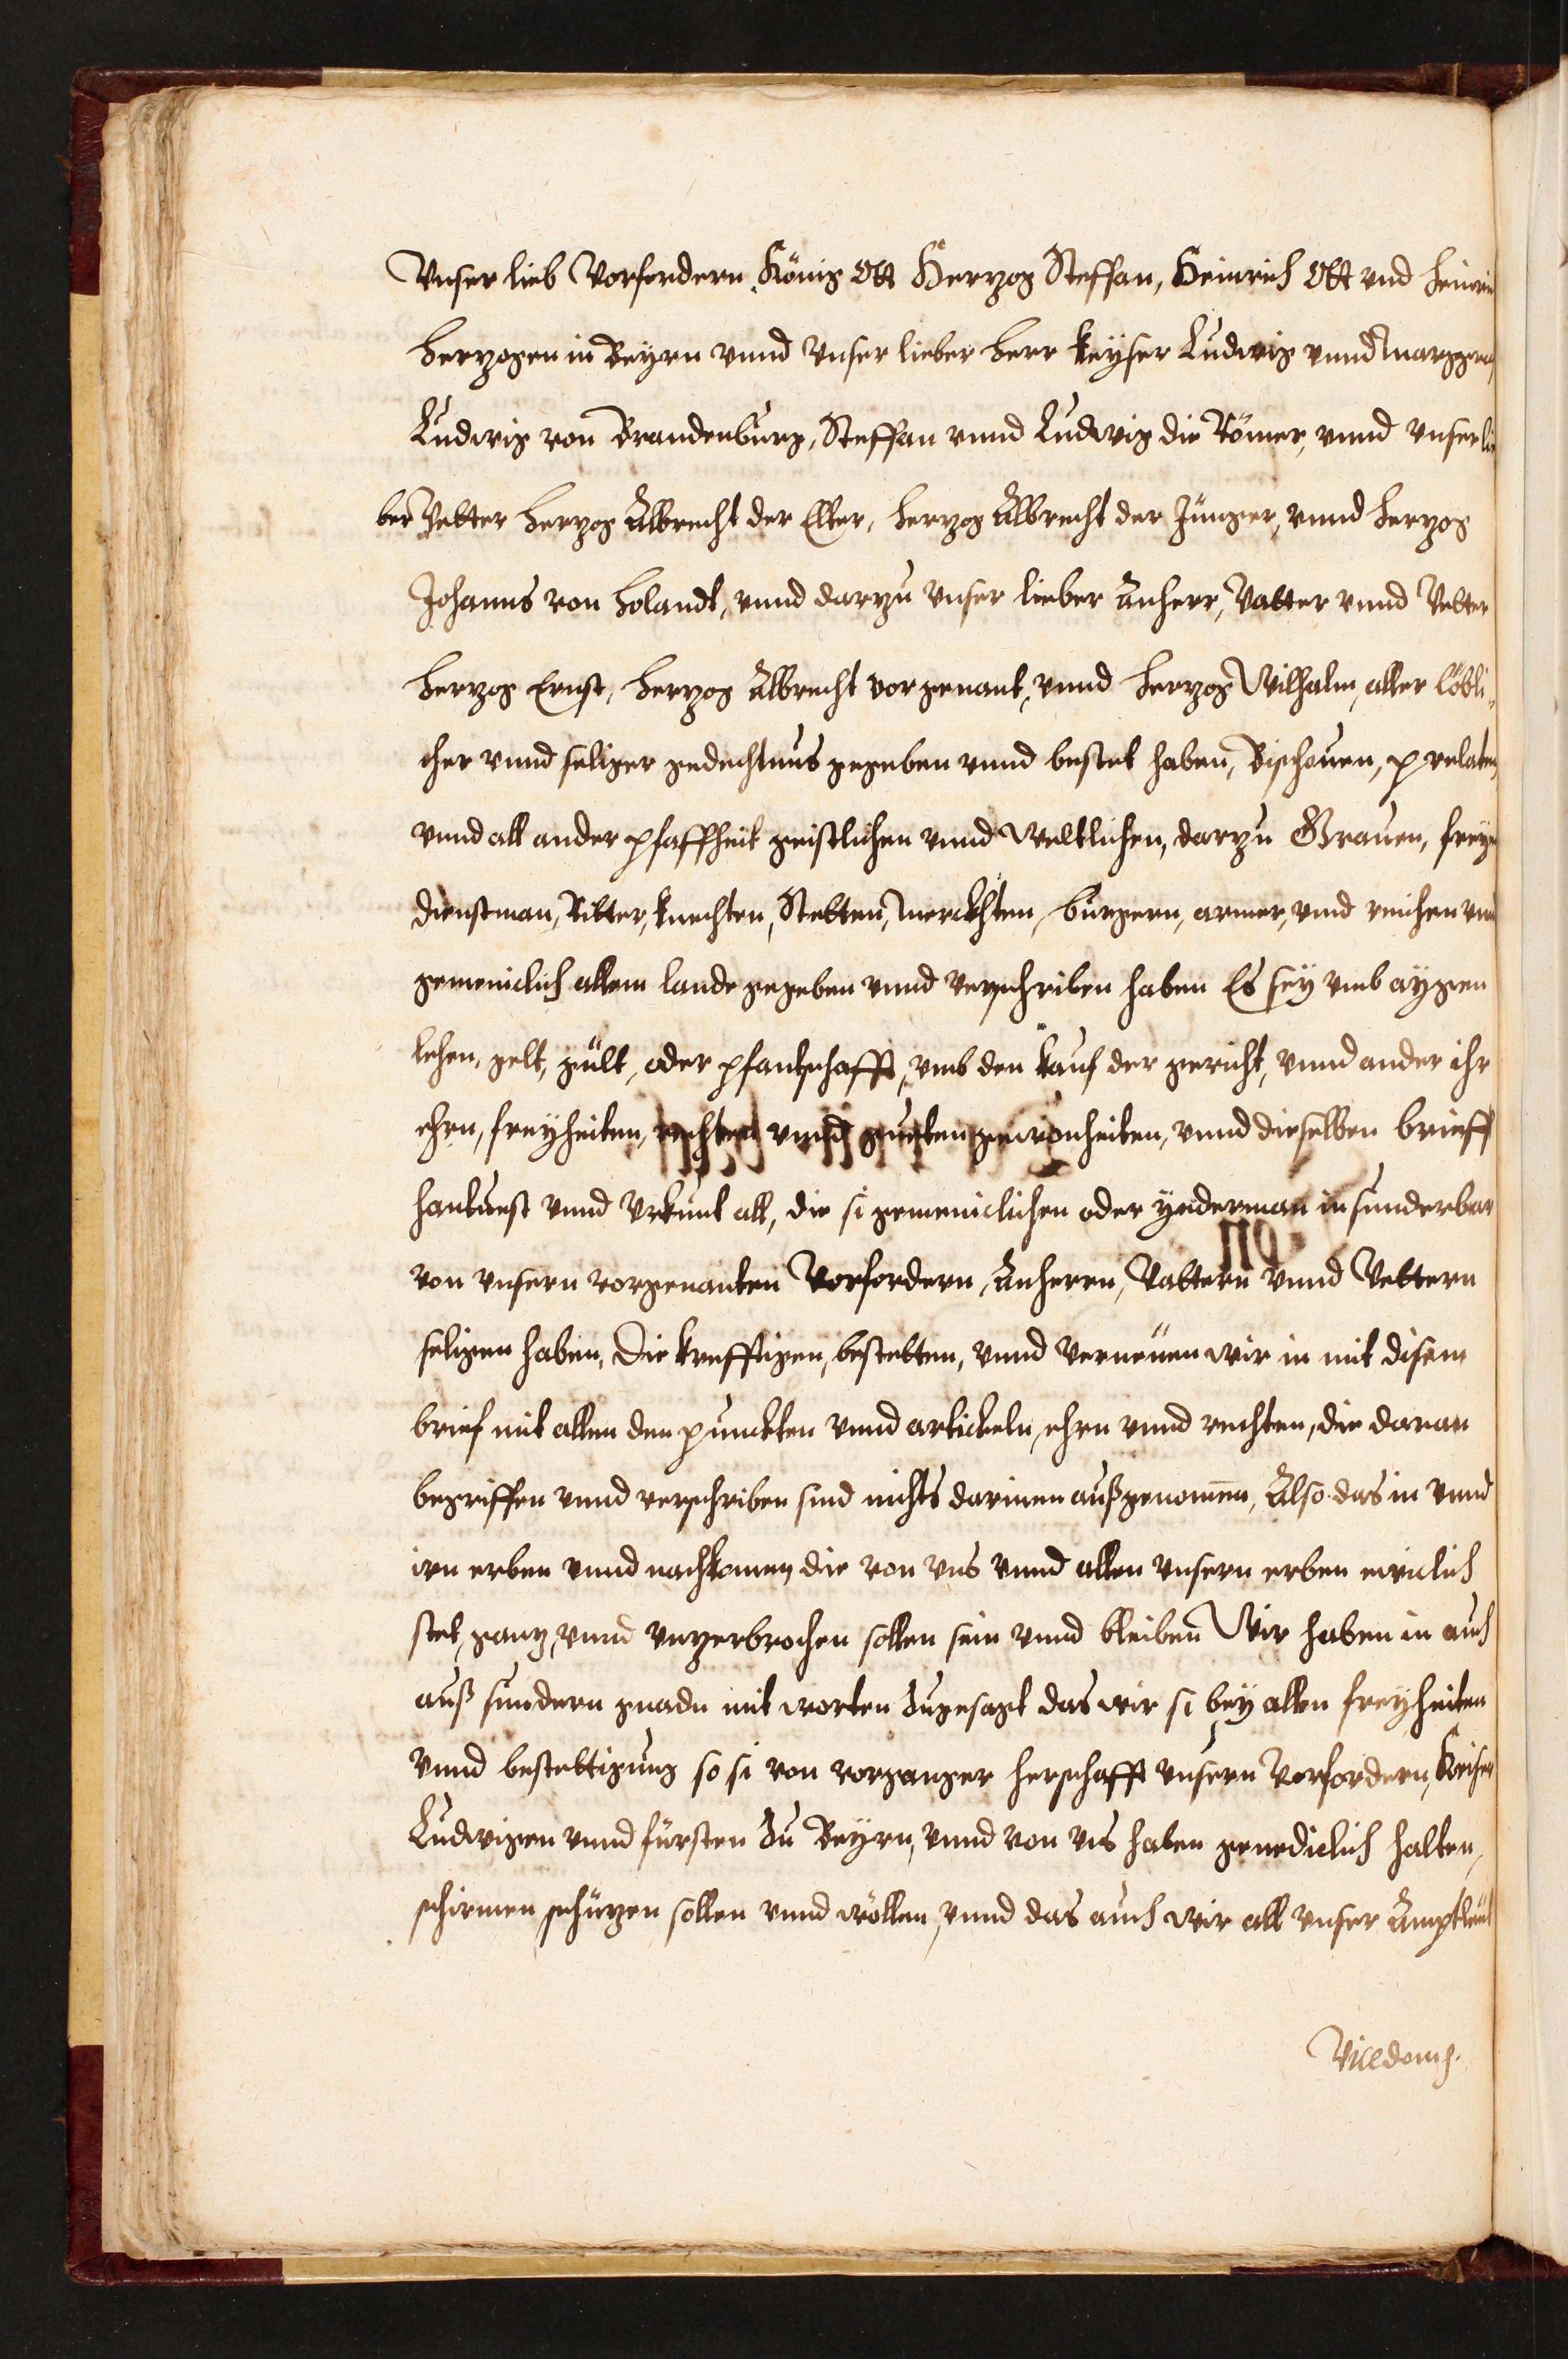 Vnser lieb Vorfordern König Ott Herzog Steffan, Heinrich Ott vnd Heinrich
Herzogen in Beyrn vnnd Vnser lieber Herr Keyser Ludwig vnnd Marggraf
Ludwig von Brandenburg, Steffan vnnd Ludwig die Römer, vnnd vnser lie
ber Vetter Herzog Albrecht der Elter, Herzog Albrecht der Jünger, vnnd Herzog
Johanns von Holandt, vnnd darzu vnser lieber Anherr, Vatter vnnd Vetter
Herzog Ernst, Herzog Albrecht vorgenant, vnnd Herzog Wilhalm, aller löbli-
cher vnnd seliger gedechtnus gegeben vnnd bestet haben, Bischouen, prelaten,
vnnd all ander pfaffheit geistlichen vnnd Weltlichen, darzu Grauen, freyen
dienstman, Ritter, knechten, Stetten, Merckhten, burgern, armer, vnnd reichen vnnd
gemeinclich allem lande gegeben vnnd verschriben haben Es sey vmb aygen
lehen, gelt, gült, oder pfantschafft, vmb den kauf der gericht, vnnd ander ihr
ehrn, freyheiten, rechten vnnd gueten gewonheiten, vnnd dieselben brieff
hantuest vnnd Vrkunt all, die si gemeinclichen oder yederman in sunderbar
von vnsern vorgenanten Vorfordern, Anherrn, Vattern vnnd Vettern
seligen haben, Die krefftigen, bestetten, vnnd Verneüen wir in mit disem
brief mit allen den puncten vnnd artickeln, ehrn vnnd rechten, die daran
begriffen vnnd verschriben sind nichts darinen außgenomen, Also das in vnnd
irn erben vnnd nachkomen die von vns vnnd allen vnsern erben ewiclich
stet, ganz, vnnd vnzerbrochen sollen sein vnnd bleiben Wir haben in auch
auß sundern gnadn mit worten Zugesagt das wir si bey allen freyheiten
vnnd bestettigung so si von vorganger herschafft vnsern Vorfordern, Keiser
Ludwigen vnnd fürsten Zu Beyrn, vnnd von vns haben genediclich halten,
schirmen schützen sollen vnnd wöllen, vnnd das auch wir all vnser Amptleut
Vicedomb.